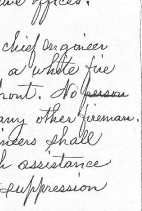 offices.
chief engineer
a white fire
front. No person
any other fireman.
neers shall
h assistance
suppression